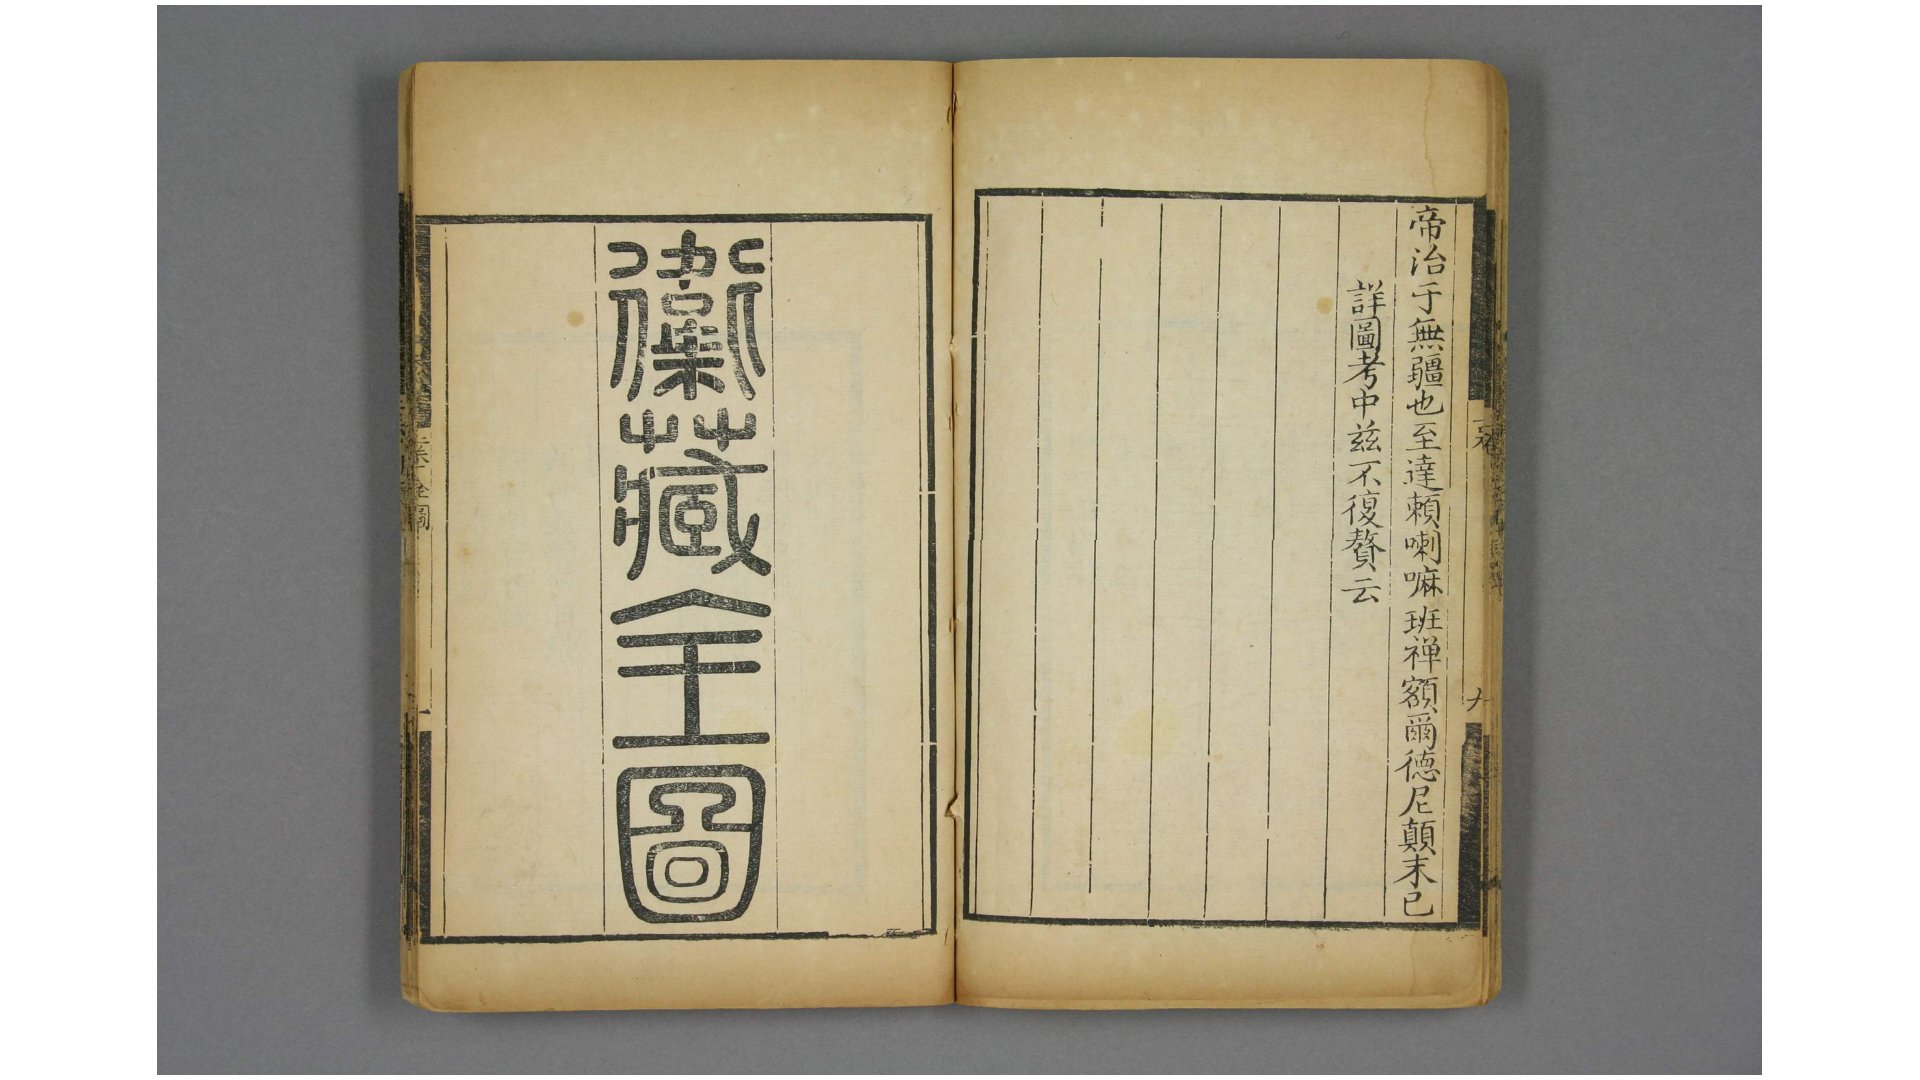 帝治于無疆也至達賴喇嘛班禅額爾德尼顛末已
詳圖考中兹不復贅云
衞藏全圖